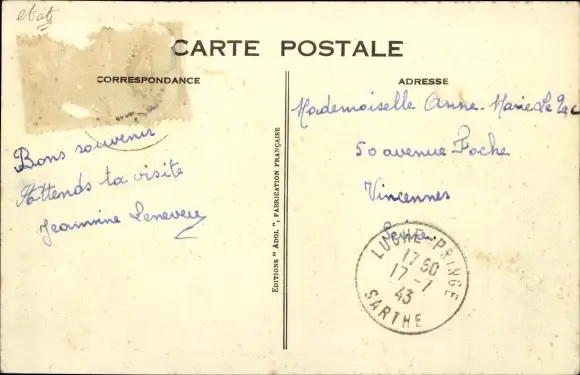 etat
CARTE POSTALE
CORRESPONDANCE
ADRESSE
Bons souvenir
J'attends ta visite
Jeannine Lenevere
EDITIONS " ADOL ", FABRICATION FRANÇAISE
Mademoiselle Anne-Marie Le
50 avenue Foche
Vincennes
Seine
LUCHE-PRINGE
17 50
17 -7
43
SARTHE